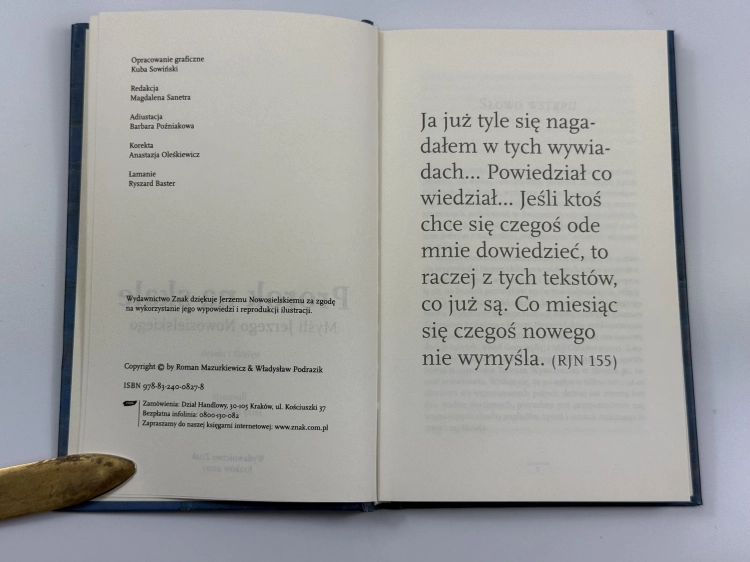 Opracowanie graficzne
Kuba Sowiński
Redakcja
Magdalena Sanetra
Adiustacja
Barbara Poźniakowa
Korekta
Anastazja Oleśkiewicz
Łamanie
Ryszard Baster
Wydawnictwo Znak dziękuje Jerzemu Nowosielskiemu za zgodę
na wykorzystanie jego wypowiedzi i reprodukcji ilustracji.
Copyright © by Roman Mazurkiewicz & Władysław Podrazik
ISBN 978-83-240-0827-8
Zamówienia: Dział Handlowy, 30-105 Kraków, ul. Kościuszki 37
Bezpłatna infolinia: 0800-130-082
Zapraszamy do naszej księgarni internetowej: www.znak.com.pl
Ja już tyle się naga-
dałem w tych wywia-
dach... Powiedział co
wiedział... Jeśli ktoś
chce się czegoś ode
mnie dowiedzieć, to
raczej z tych tekstów,
co już są. Co miesiąc
się czegoś nowego
nie wymyśla. (RJN 155)